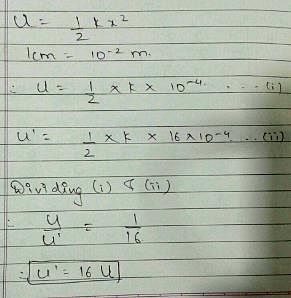 U = 1/2 k x²
1cm = 10⁻² m.
∴ U = 1/2 × k × 10⁻⁴. ... (i)
U' = 1/2 × k × 16 × 10⁻⁴ .. (ii)
Dividing (i) & (ii)
∴ U/U' = 1/16
∴ U' = 16 U